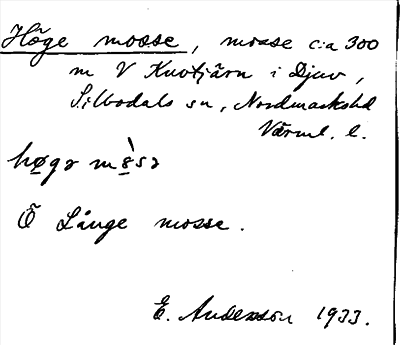 Höge mosse, mosse c:a 300
m V Kvotjärn i Djuv,
Silbodals sn, Nordmarks hd
Värml. l.
høgə mòsə
Ö Långe mosse.
E. Anderson 1933.